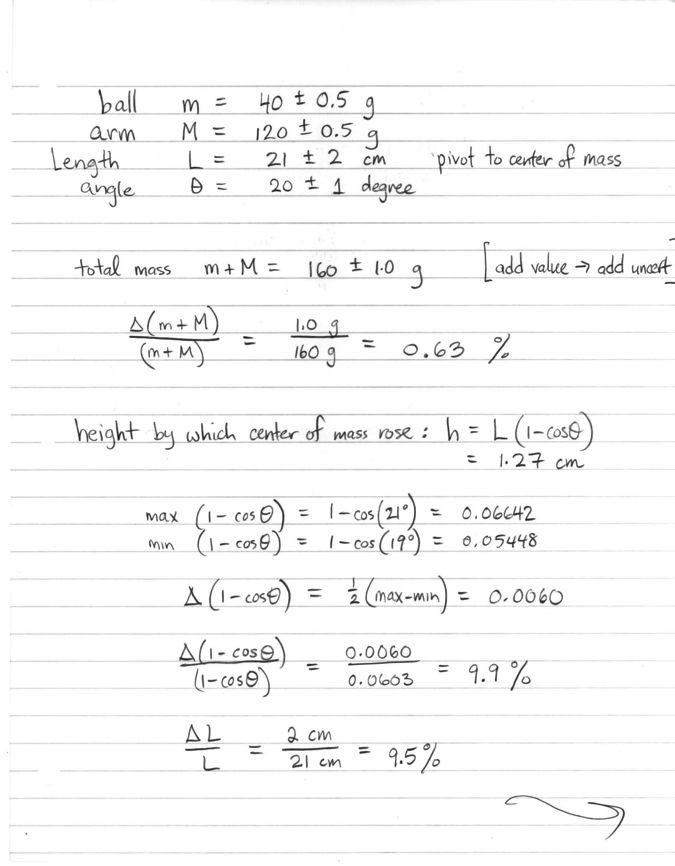 ball m = 40 ± 0.5 g
arm M = 120 ± 0.5 g
Length L = 21 ± 2 cm pivot to center of mass
angle θ = 20 ± 1 degree
total mass m + M = 160 ± 1.0 g [add value → add uncert]
Δ(m + M)/(m + M) = 1.0 g/160 g = 0.63 %
height by which center of mass rose : h = L (1-cosθ)
= 1.27 cm
max (1 - cos θ) = 1 - cos(21°) = 0.06642
min (1 - cosθ) = 1 - cos(19°) = 0.05448
Δ(1 - cosθ) = ½(max-min) = 0.0060
Δ(1 - cosθ)/(1-cosθ) = 0.0060/0.0603 = 9.9 %
ΔL/L = 2 cm/21 cm = 9.5%